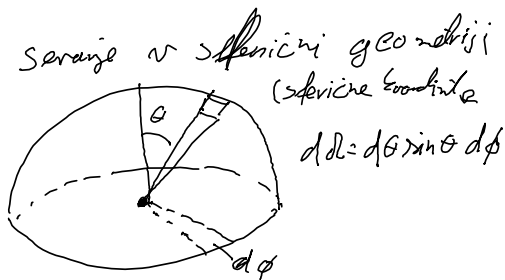 v sferični geometriji
(sferične koordinate
θ
dΩ = dθ sinθ dϕ
dϕ